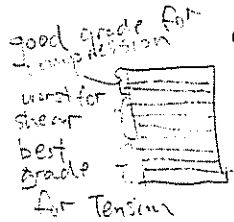 good grade for
compression
worst for
shear
best
grade
for Tension